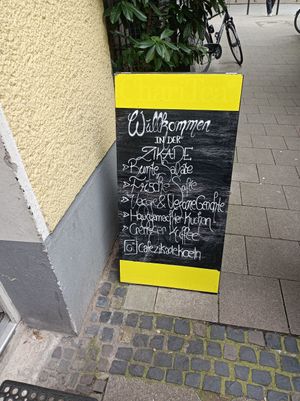 Willkommen
IN DER
ZIKADE
Bunte Salate
Frische Säfte
Vegane & Vegetarische Gerichte
Hausgemachter Kuchen
Cremiger Kaffee
Cafezikadekoeln